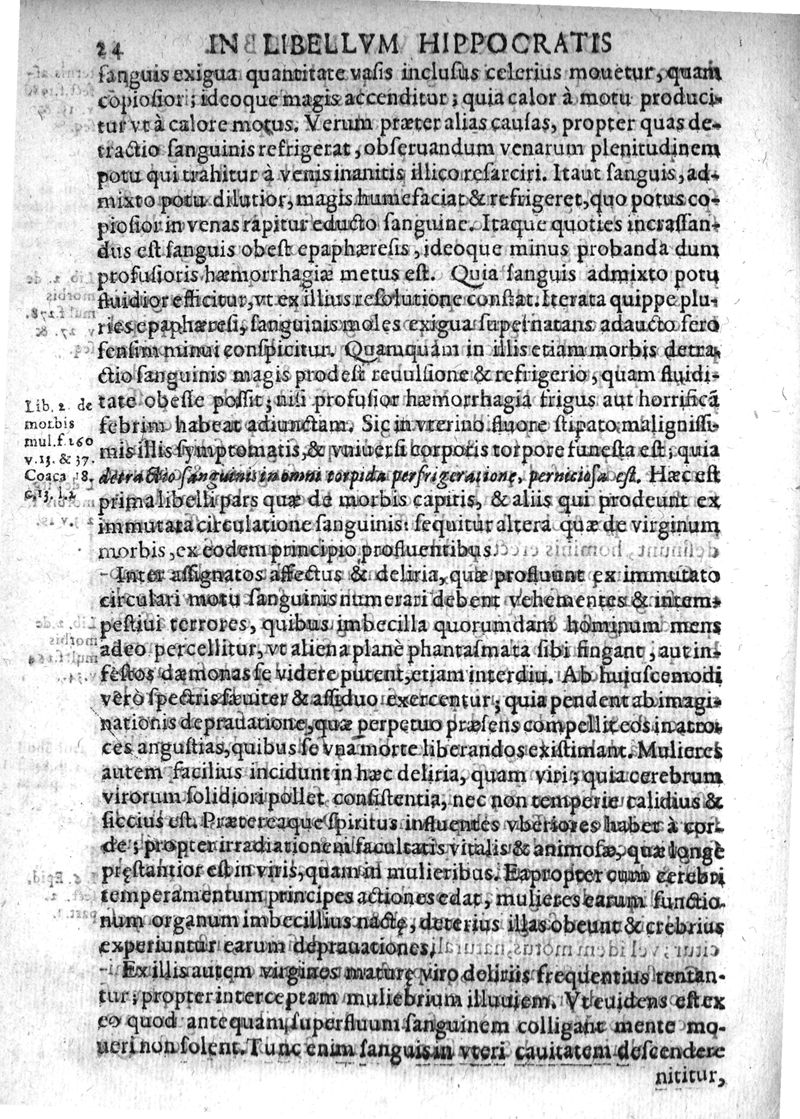 24 IN LIBELLVM HIPPOCRATIS
ſanguis exigua quantitate vaſis incluſus celerius mouetur, quam
copioſior; ideoque magis accenditur; quia calor à motu produci-
tur vt à calore motus. Verum præter alias cauſas, propter quas de-
tractio ſanguinis refrigerat, obſeruandum venarum plenitudinem
potu qui trahitur à venis inanitis illico reſarciri. Itaut ſanguis, ad-
mixto potu dilutior, magis humefaciat & refrigeret, quo potus co-
pioſior in venas rapitur educto ſanguine. Itaque quoties incraſſan-
dus eſt ſanguis obeſt epaphæreſis, ideoque minus probanda dum
profuſioris hæmorrhagiæ metus eſt. Quia ſanguis admixto potu
fluidior efficitur, vt ex illius reſolutione conſtat. Iterata quippe plu-
ries epaphæreſi, ſanguinis moles exigua ſupernatans adaucto ſero
ſenſim minui conſpicitur. Quamquam in illis etiam morbis detra-
ctio ſanguinis magis prodeſt reuulſione & refrigerio, quam fluidi-
tate obeſſe poſſit; niſi profuſior hæmorrhagia frigus aut horrificã
febrim habeat adiunctam. Sic in vterino fluore ſtipato maligniſſi-
mis illis ſymptomatis, & vniuerſi corporis torpore funeſta eſt; quia
detractio ſanguinis in omni torpida perfrigeratione, pernicioſa eſt. Hæc eſt
prima libelli pars quæ de morbis capitis, & aliis qui prodeunt ex
immutata circulatione ſanguinis: ſequitur altera quæ de virginum
morbis, ex eodem principio profluentibus.
Lib. 2. de
morbis
mul. f. 260
v. 13. & 37.
Coaca 18.
c. 13. l. 2
Inter aſſignatos affectus & deliria, quæ profluunt ex immutato
circulari motu ſanguinis numerari debent vehementes & intem-
peſtiui terrores, quibus imbecilla quorumdam hominum mens
adeo percellitur, vt aliena planè phantaſmata ſibi fingant, aut in-
feſtos dæmonas ſe videre putent, etiam interdiu. Ab hujuſcemodi
verò ſpectris ſæuiter & aſſiduo exercentur; quia pendent ab imagi-
nationis deprauatione, quæ perpetuo præſens compellit eos in atro-
ces anguſtias, quibus ſe vna morte liberandos exiſtimant. Mulieres
autem facilius incidunt in hæc deliria, quam viri; quia cerebrum
virorum ſolidiori pollet conſiſtentia, nec non temperie calidius &
ſiccius eſt. Prætereaque ſpiritus influentes vberiores habet à cor-
de; propter irradiationem facultatis vitalis & animoſæ, quæ longè
pręſtantior eſt in viris, quam in mulieribus. Eapropter cum cerebri
temperamentum principes actiones edat, mulieres earum functio-
num organum imbecillius nactę, deterius illas obeunt & crebrius
experiuntur earum deprauationes.
Ex illis autem virgines maturę viro deliriis frequentius tentan-
tur; propter interceptam muliebrium illuuiem. Vt euidens eſt ex
eo quod antequam ſuperfluum ſanguinem colligant mente mo-
ueri non ſolent. Tunc enim ſanguis in vteri cauitatem deſcendere
nititur,